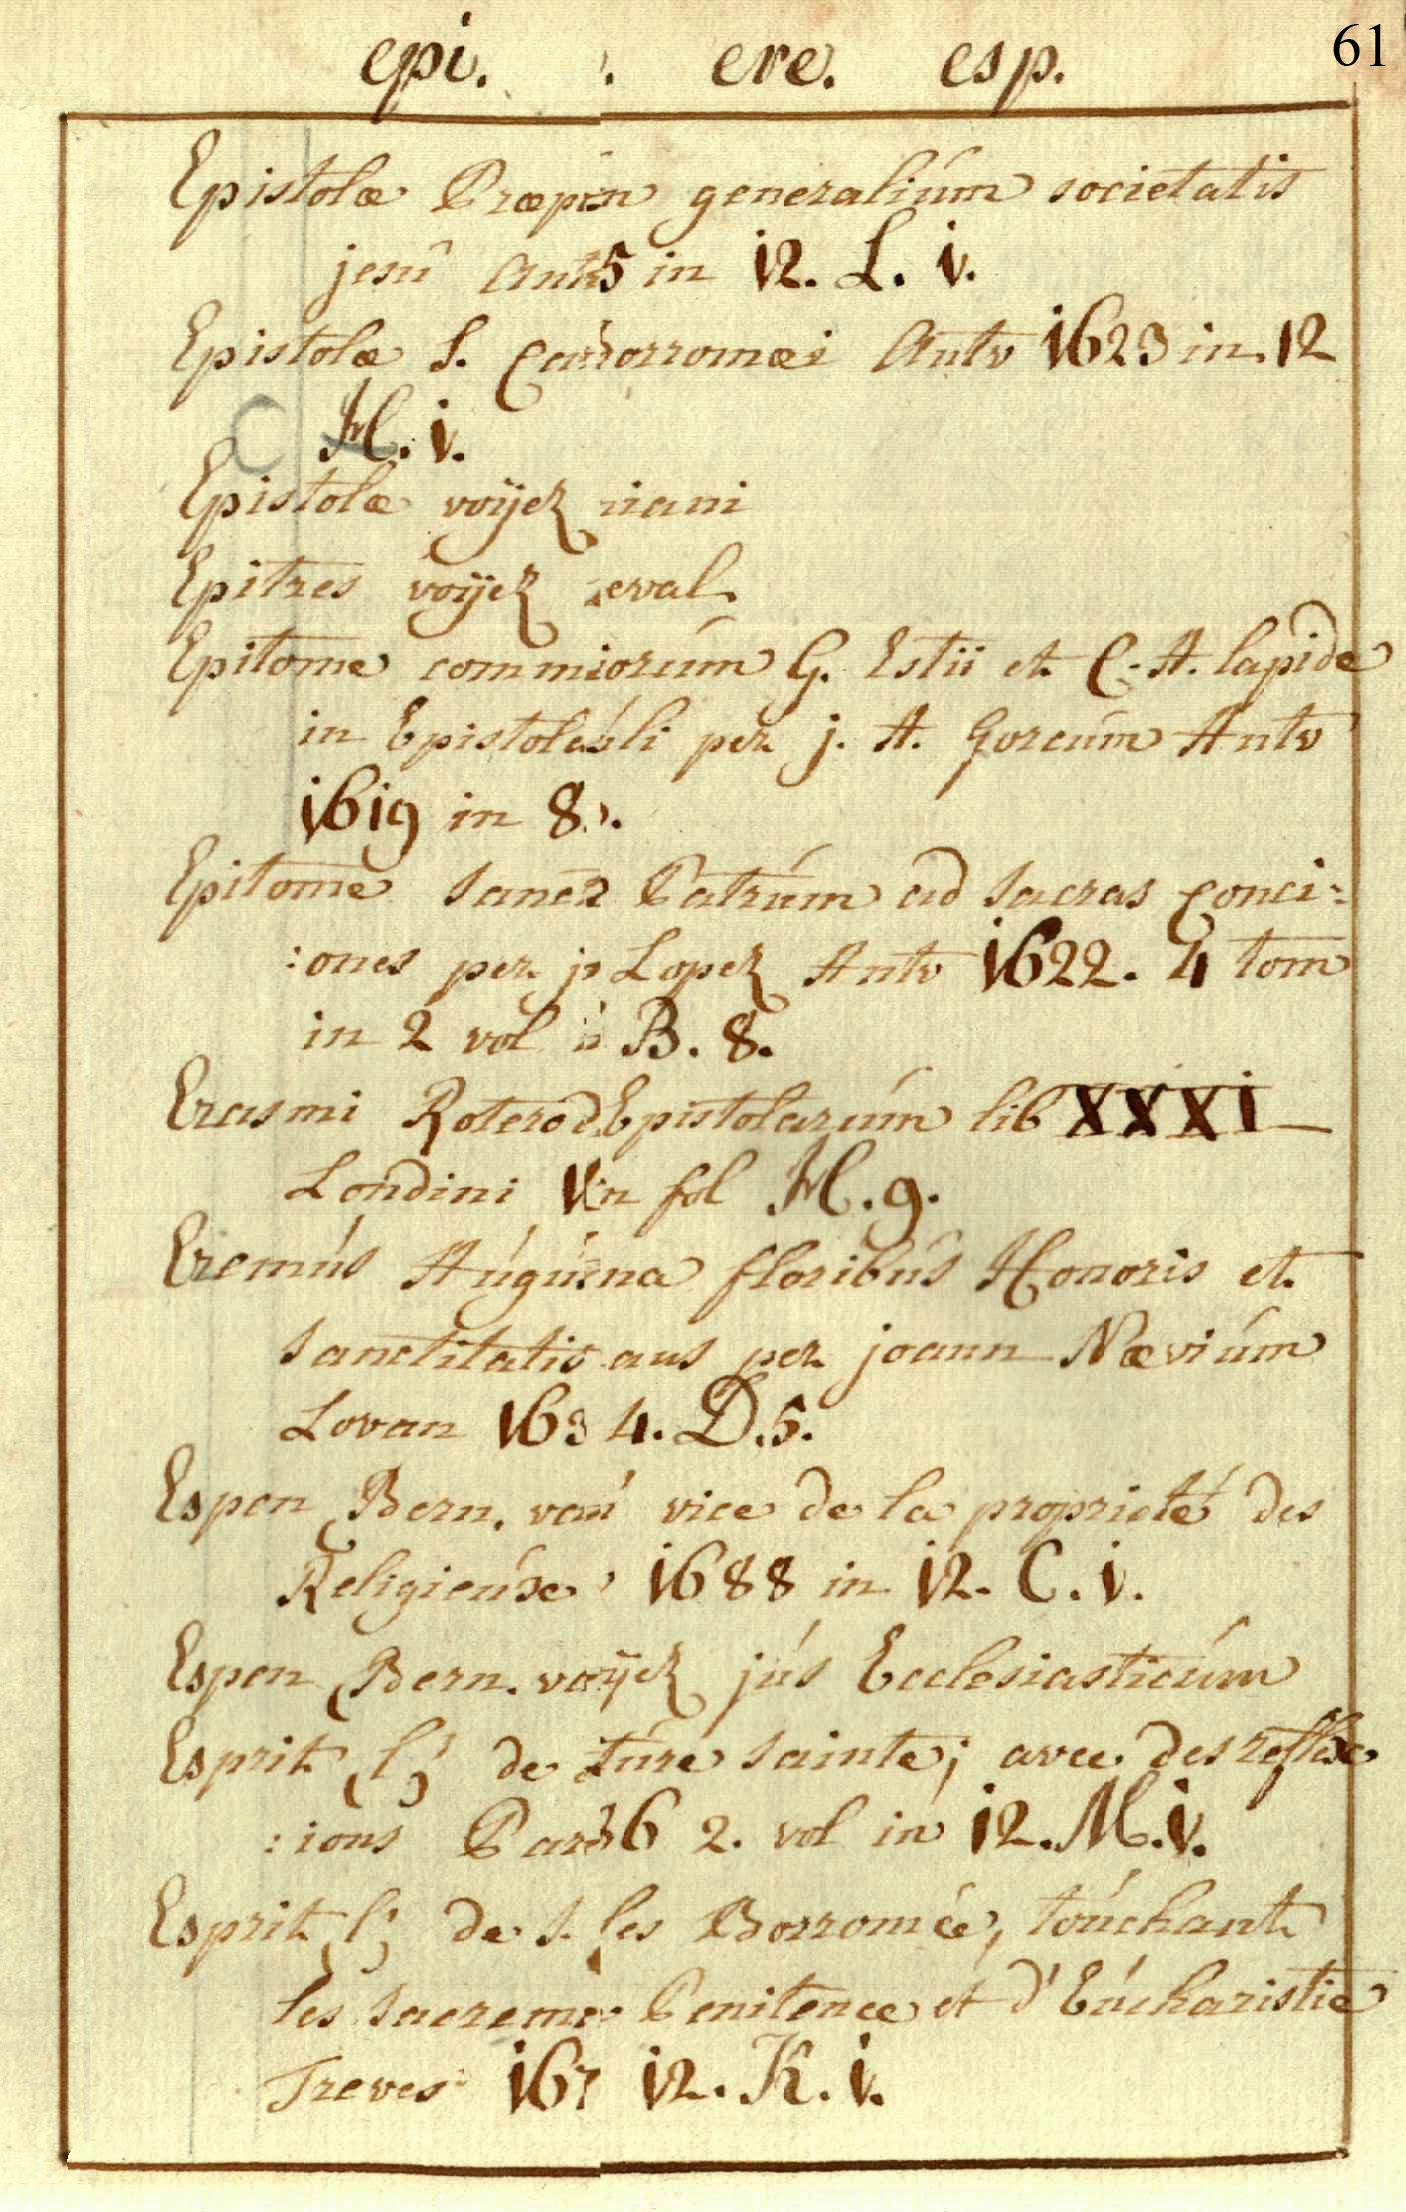 61
epi. . ere. esp.
Epistolæ Præpon generaliúm societatis
jesú Ant5 in 12. L. i.
Epistolæ S. Carborromæi Antv 1623 in 12
M. i.
Epistolæ voÿez iani
Epitres voÿez eval.
Epitome commiorúm G. Estii et C. A. lapide
in Epistolaúli per j. A. Gorcúm Antv
1619 in 8.
Epitome Sanct Patrúm ad Sacras conci:
:ones per j Lopez Antv 1622. 4 tom
in 2 vol B. 8.
Erasmi Roterod Epistolarúm lib XXXI
Londini in fol M. 9.
Eremús Augúina floribús Honoris et
Sanctitatis aus per joann Næviúm
Lovan 163 4. D. 5.
Espen Bern. van vice de la proprieté des
Religieúse 1688 in 12. C. i.
Espen Bern. voÿez jús Ecclesiasticúm
Esprit l' de túre Sainte; avec des reflex
:ions Par36 2. vol in 12. M. i.
Esprit l' de S. les Borromée, toúchant
les Sacreme Penitence et d'Eúcharistie
Treves 167 12. K. i.